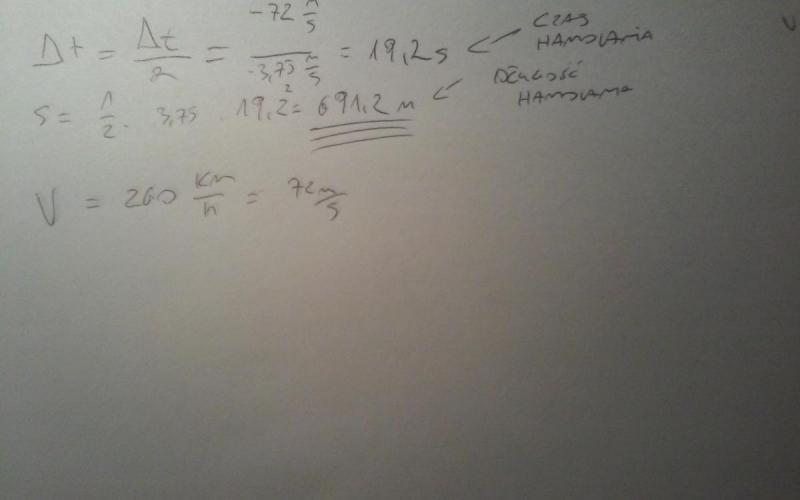 Δt = Δt/a = -72 m/s / -3,75 m/s = 19,2s ← CZAS HAMOWANIA
s = 1/2 · 3,75 · 19,2² = 691,2 m ← DŁUGOŚĆ HAMOWANIA
V = 260 km/h = 72 m/s